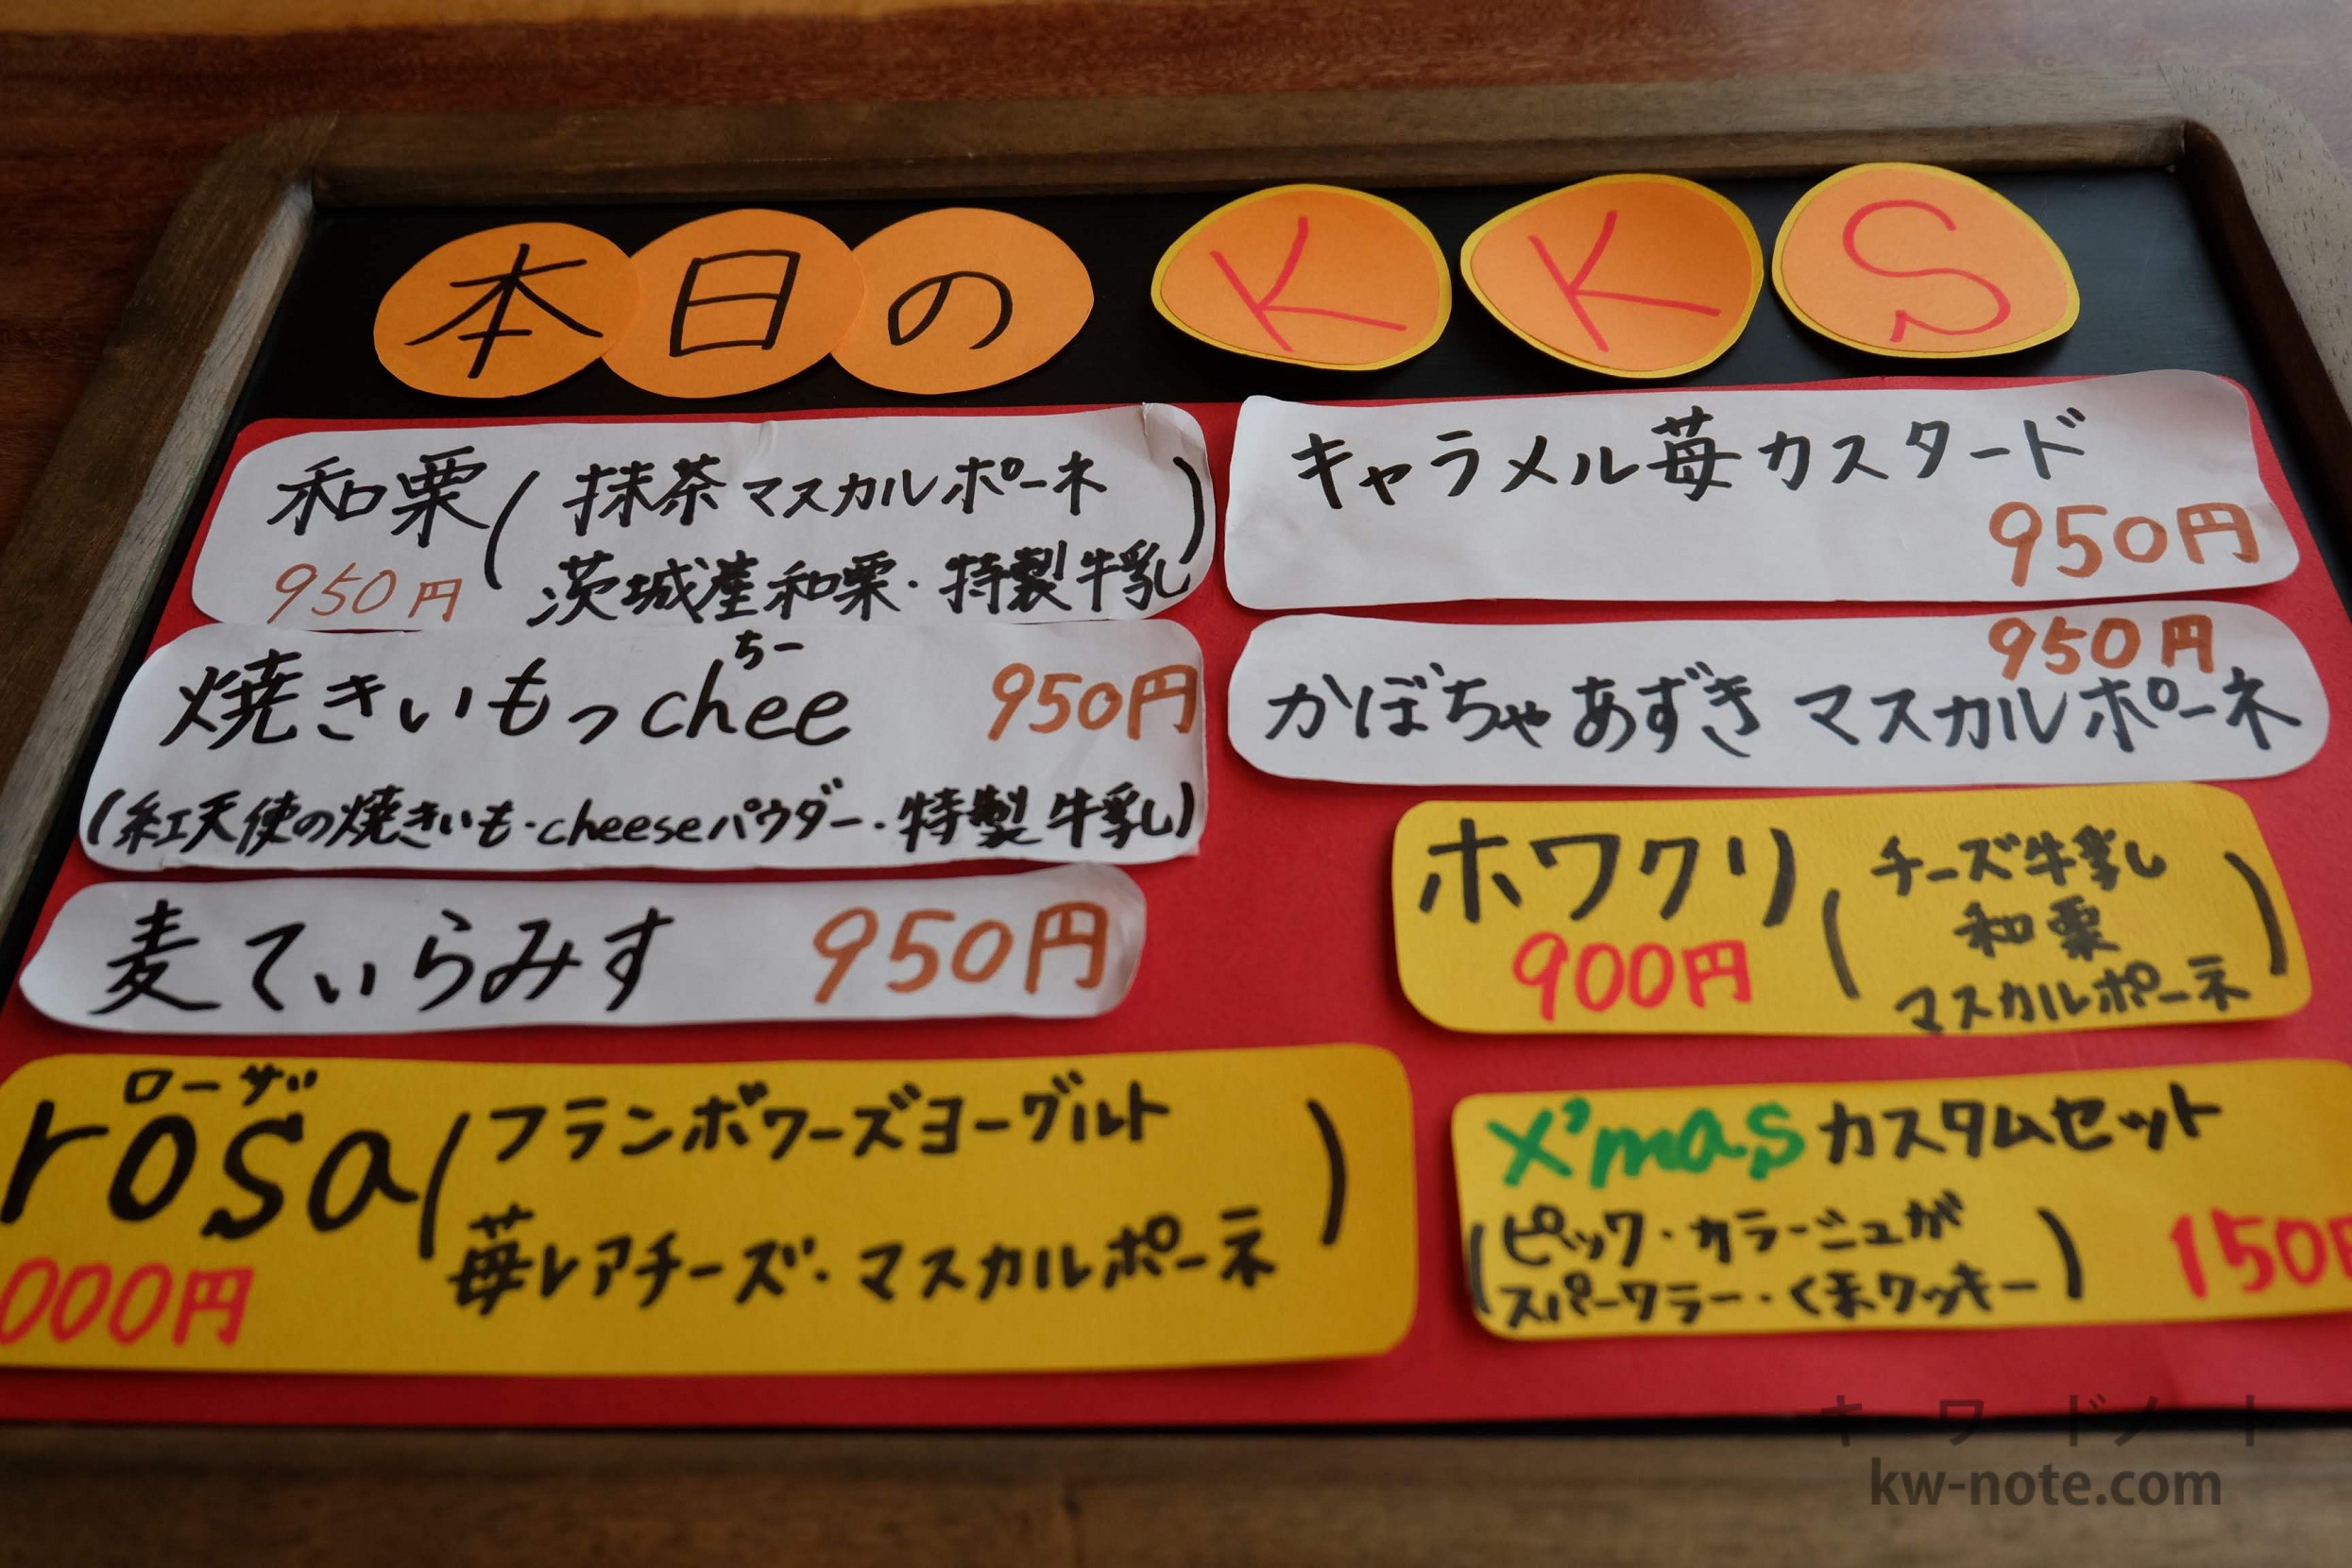 本日の KKS
和栗(抹茶マスカルポーネ
茨城産和栗・特製牛乳)
950円
キャラメル苺カスタード
950円
ちー
焼きいもっchee 950円
(紅天使の焼きいも・cheeseパウダー・特製牛乳)
950円
かぼちゃあずきマスカルポーネ
麦てぃらみす 950円
ホワクリ(チーズ牛乳
和栗
マスカルポーネ)
900円
ローザ
rosa(フランボワーズヨーグルト
苺レアチーズ・マスカルポーネ)
000円
X'masカスタムセット
(ピック・カラージュが
スパークラー・くまクッキー) 150円
キーワードノート
kw-note.com